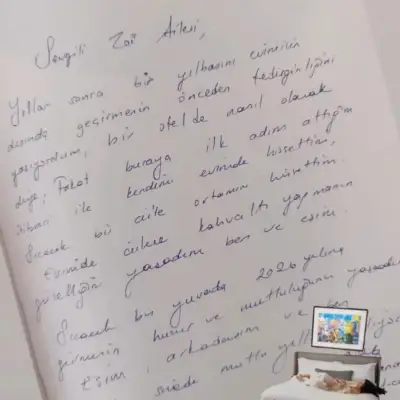 Sevgili Zai Ailesi,
Yıllar sonra bir yılbaşını evimizin
dışında geçirmenin önceden tedirginliğini
yaşıyordum, bir otelde nasıl olacak
diye, Fakat buraya ilk adım attığım
itibari ile kendimi evimde hissettim,
Sıcacık bir aile ortamını hissettim.
Evimde ailece kahvaltı yapmanın
güzelliğini yaşadım ben ve eşim.
Sıcacık bir yuvada 2026 yılına
girmenin huzur ve mutluluğunu
Eşim, arkadaşım ve ben
sizede mutlu